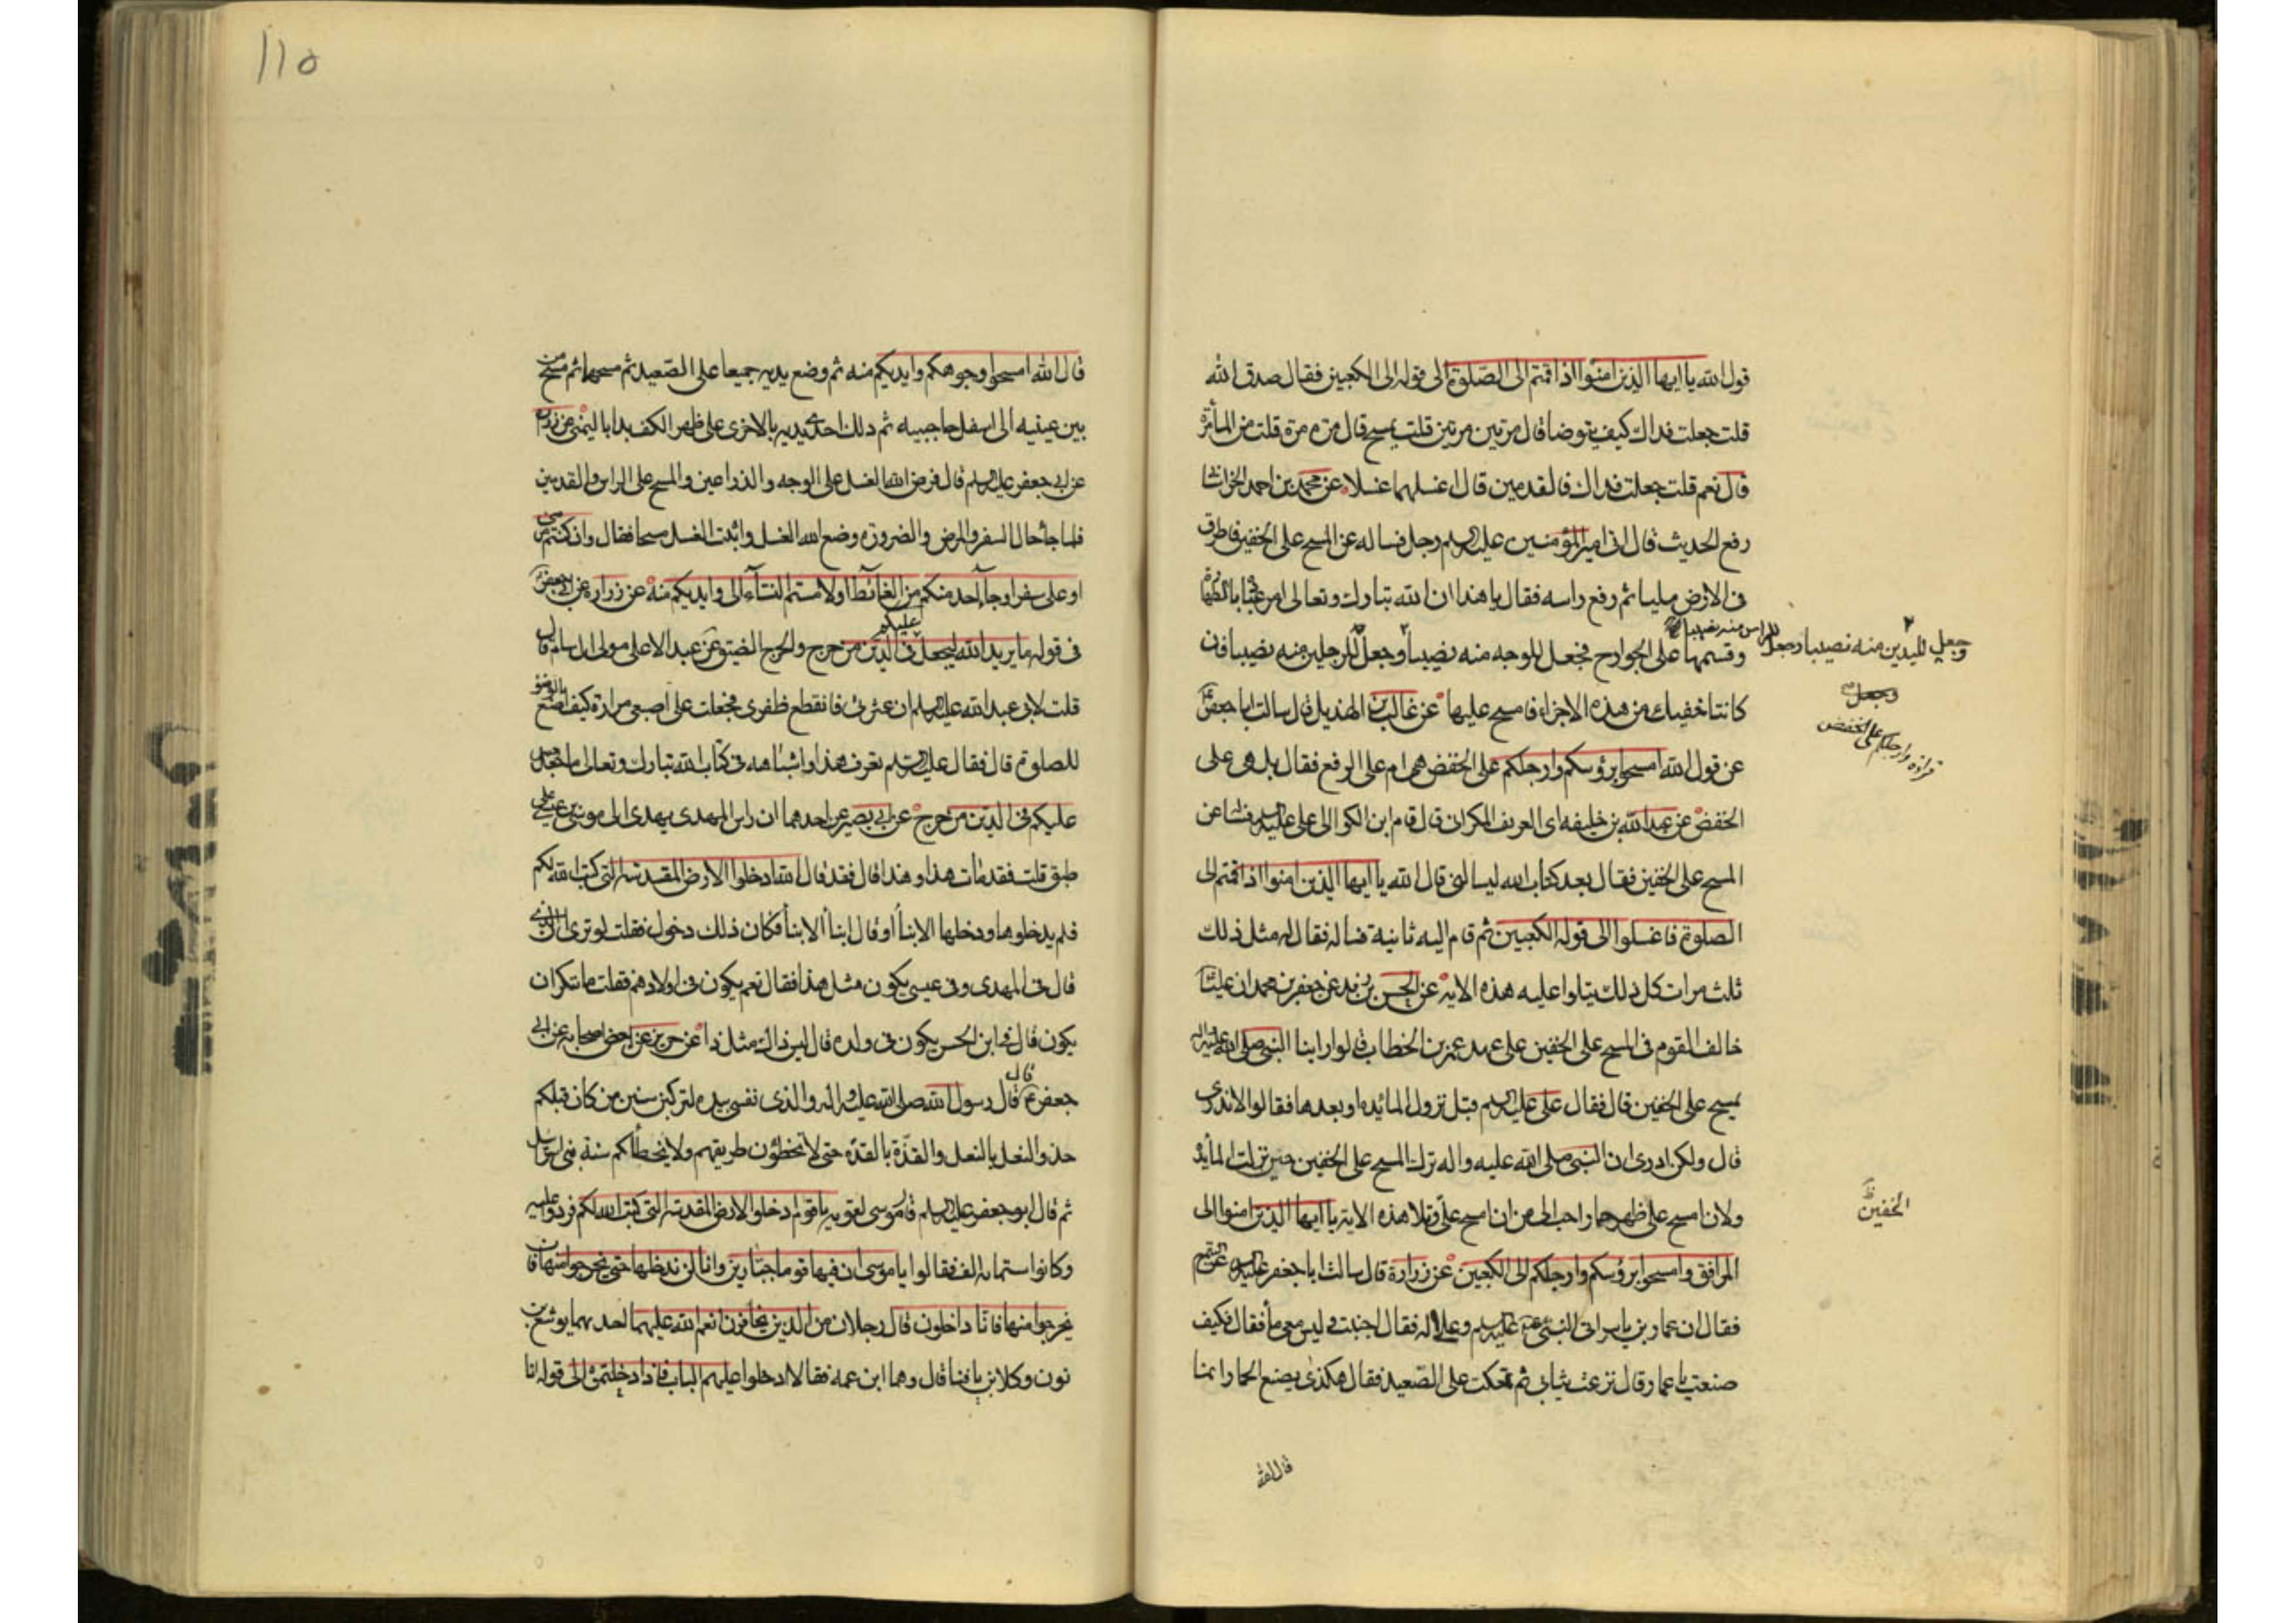 قول الله يا ايها الذين امنوا اذا قمتم الى الصلوة الى قوله الى الكعبين فقال صدق الله
قلت جعلت فداك كيف يتوضا قال مرتين مرتين قلت يمسح قال مرة مرة قلت من الماء مرة
قال نعم قلت جعلت فداك فالقدمين قال اغسلهما غسلا عن محمد بن احمد الخراسانى
رفع الحديث قال اتى امير المؤمنين عليه السلم رجل فساله عن المسح على الخفين فاطرق
فى الارض مليا ثم رفع راسه فقال يا هذا ان الله تبارك وتعالى امر عباده بالطهارة
وقسمها على الجوارح فجعل للوجه منه نصيبا وجعل للرجلين منه نصيبا فان
وجعل لليدين منه نصيبا وجعل للراس منه نصيبا
كانتا خفيك من هذه الاجزاء فامسح عليها عن غالب بن الهذيل قال سالت ابا جعفر
وجعل
عن قول الله امسحوا برؤسكم وارجلكم على الخفض هى ام على الرفع فقال بل هى على
قراءة وارجلكم على الخفض
الخفض عن عبدالله بن خليفه ابى العريف المكران قال قام ابن الكوا الى على عليه السلم فساله عن
المسح على الخفين فقال بعد كتاب الله تسالنى قال الله يا ايها الذين امنوا اذا قمتم الى
الصلوة فاغسلوا الى قوله الكعبين ثم قام اليه ثانية فساله فقال له مثل ذلك
ثلث مرات كل ذلك يتلوا عليه هذه الايه عن الحسن بن زيد عن جعفر بن محمد ان عليا
خالف القوم فى المسح على الخفين على عهد عمر بن الخطاب قالوا راينا النبى صلى الله عليه واله
يمسح على الخفين قال فقال على عليه السلم قبل نزول المائده او بعدها فقالوا لا ندرى
قال ولكن ادرى ان النبى صلى الله عليه واله ترك المسح على الخفين حين نزلت المائدة
ولان امسح على ظهر حمار احب الى من ان امسح على وتلا هذه الاية يا ايها الذين امنوا الى
الخفين ظ
المرافق وامسحوا برؤسكم وارجلكم الى الكعبين عن زرارة قال سالت ابا جعفر عليه السلم عن التيمم
فقال ان عمار بن ياسر اتى النبى صلى الله عليه وعلى اله فقال اجنبت وليس معى ماء فقال فكيف
صنعت يا عمار قال نزعت ثيابى ثم تمعكت على الصعيد فقال هكذى يصنع الحمار انما
قال الله
١١٥
قال الله امسحوا وجوهكم وايديكم منه ثم وضع يديه جميعا على الصعيد ثم مسحها ثم مسح من
بين عينيه الى اسفل حاجبيه ثم دلك احدى يديه بالاخرى على ظهر الكف بدا باليمنى عن زرارة
عن ابى جعفر عليه السلم قال فرض الله الغسل على الوجه والذراعين والمسح على الراس والقدمين
فلما جاء حال السفر والمرض والضرورة وضع الله الغسل واثبت الغسل مسحا فقال وان كنتم مرضى
او على سفر او جاء احد منكم من الغائط او لامستم النساء الى وايديكم منه عن زرارة عن ابى جعفر
فى قوله ما يريد الله ليجعل عليكم فى الدين من حرج والحرج الضيق عن عبد الاعلى مولى ال سام قال
قلت لابى عبد الله عليه السلم انى عثرت فانقطع ظفرى فجعلت على اصبعى مرارة كيف اصنع بالوضوء
للصلوة قال فقال عليه السلم تعرف هذا واشباهه فى كتاب الله تبارك وتعالى ما جعل
عليكم فى الدين من حرج عن ابى بصير عن احدهما ان راس المهدى يهدى الى موسى بن عيسى على
طبق قلت فقد مات هذا وهذا قال فقد قال الله ادخلوا الارض المقدسة التى كتب الله لكم
فلم يدخلوها ودخلها الابناء او قال ابناء الابناء فكان ذلك دخولهم فقلت لو ترى ان الذى
قال فى المهدى وفى عيسى يكون مثل هذا فقال نعم يكون فى اولادهم فقلت ما تنكر ان
يكون قال فى ابن الحسن يكون فى ولده قال ليس ذاك مثل ذا عن حريز عن بعض اصحابه عن ابى
جعفر قال قال رسول الله صلى الله عليه واله والذى نفسى بيده لتركبن سنن من كان قبلكم
حذو النعل بالنعل والقذة بالقذة حتى لا تخطؤن طريقهم ولا يخطأكم سنة بنى اسرائيل
ثم قال ابو جعفر عليه السلم قال موسى لقومه يا قوم ادخلوا الارض المقدسة التى كتب الله لكم فردوا عليه
وكانوا ستمائة الف فقالوا يا موسى ان فيها قوما جبارين وانا لن ندخلها حتى يخرجوا منها فان
يخرجوا منها فانا داخلون قال رجلان من الذين يخافون انعم الله عليهما احدهما يوشع بن
نون وكلا بن يافنا قال وهما ابن عمه فقالا ادخلوا عليهم الباب فاذا دخلتموه الى قوله انا